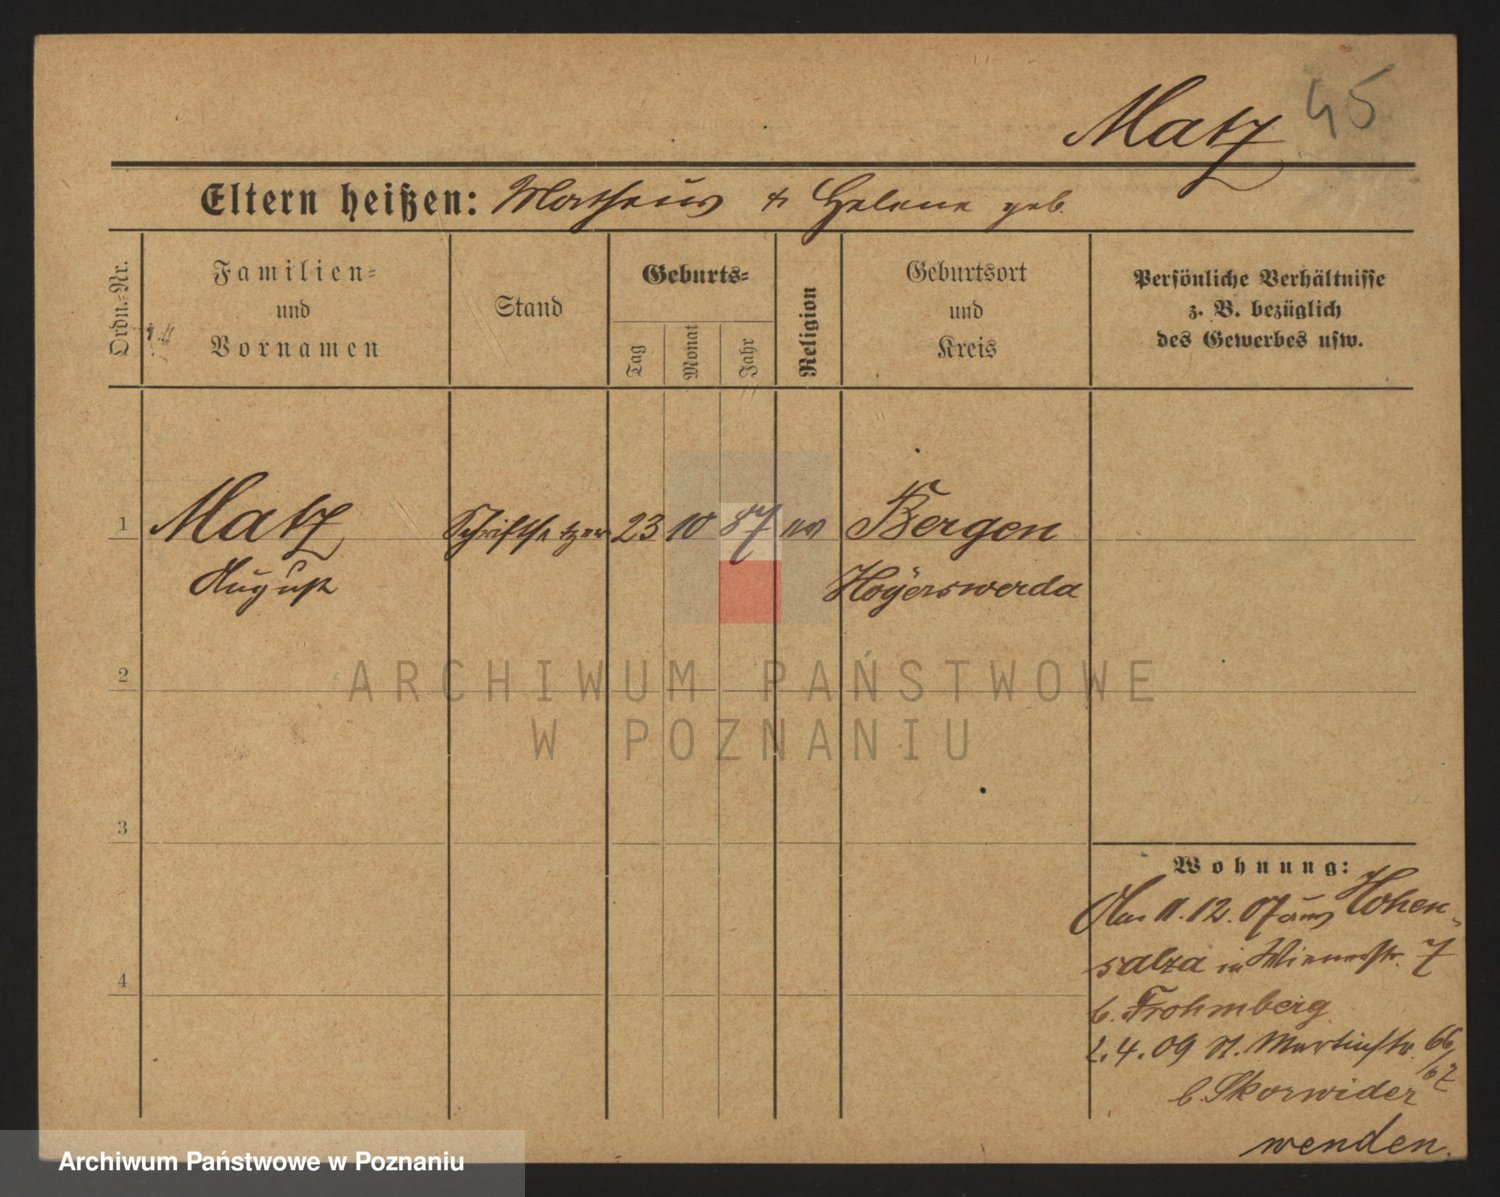 Matz 45
Eltern heißen: Matheus & Helene geb.
Ordn.-Nr.
Familien-
und
Vornamen
Stand
Geburts-
Tag
Monat
Jahr
Religion
Geburtsort
und
Kreis
Persönliche Verhältnisse
z. B. bezüglich
des Gewerbes usw.
1 Matz Schriftsetzer 23 10 87 ev Bergen
August Hoyerswerda
2
ARCHIWUM PAŃSTWOWE
W POZNANIU
3
4
Wohnung:
11.12.07 aus Hohen-
salza in Wienerstr. 7
b. Frohmberg
2.4.09 St. Martinstr. 66/67
b. Skorwider
wenden.
Archiwum Państwowe w Poznaniu